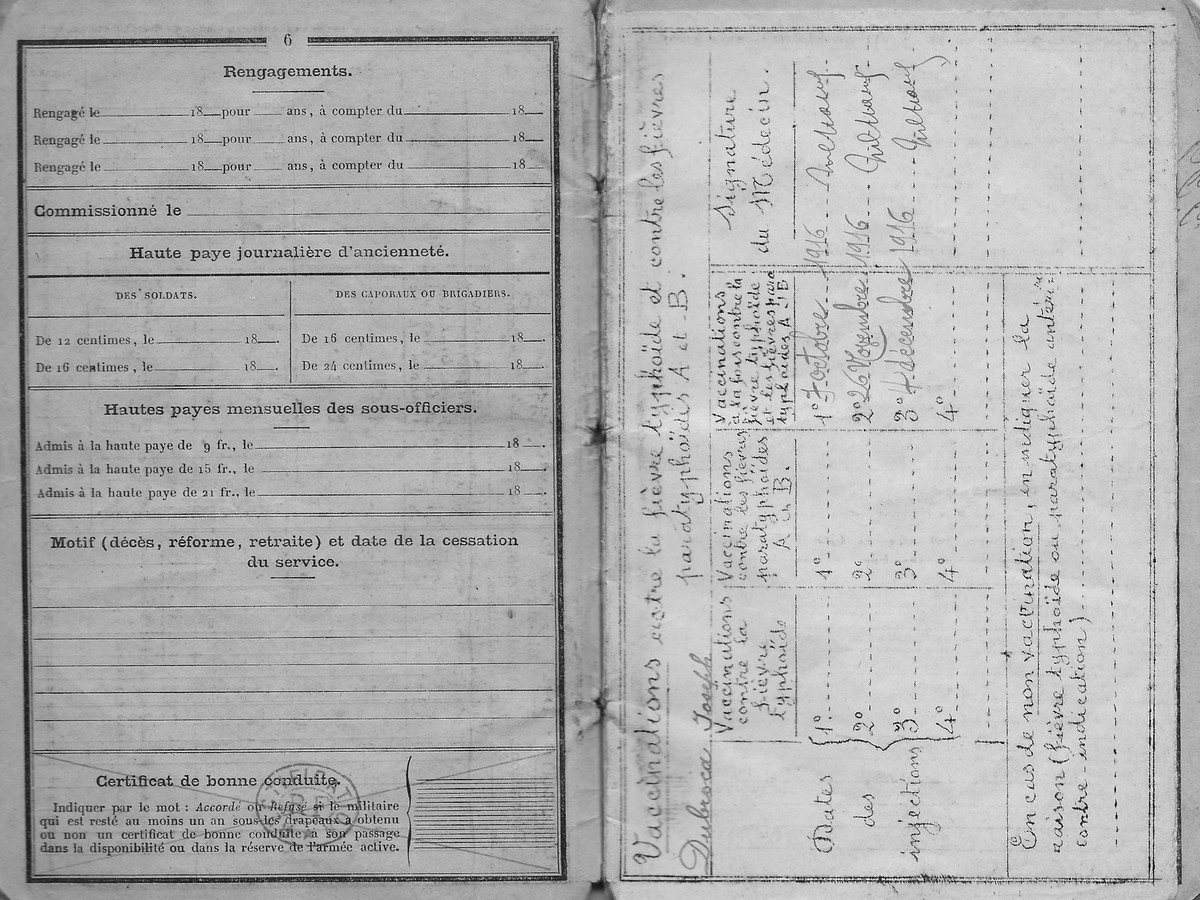 6
Rengagements.
Rengagé le 18 pour ans, à compter du 18
Rengagé le 18 pour ans, à compter du 18
Rengagé le 18 pour ans, à compter du 18
Commissionné le
Haute paye journalière d'ancienneté.
DES SOLDATS.
De 12 centimes, le 18 .
De 16 centimes, le 18 .
DES CAPORAUX OU BRIGADIERS.
De 16 centimes, le 18 .
De 24 centimes, le 18 .
Hautes payes mensuelles des sous-officiers.
Admis à la haute paye de 9 fr., le 18 .
Admis à la haute paye de 15 fr., le 18 .
Admis à la haute paye de 21 fr., le 18 .
Motif (décès, réforme, retraite) et date de la cessation
du service.
Certificat de bonne conduite.
Indiquer par le mot : Accordé ou Refusé si le militaire
qui est resté au moins un an sous les drapeaux a obtenu
ou non un certificat de bonne conduite à son passage
dans la disponibilité ou dans la réserve de l'armée active.
Vaccinations contre la fièvre typhoïde et contre les fièvres
paratyphoïdes A et B.
Dubroca Joseph
Vaccinations
contre la
fièvre
typhoïde
Vaccinations
contre les fièvres
paratyphoïdes
A en B.
Vaccinations
à la fois contre la
fièvre typhoïde
et les fièvres para
typhoïdes A et B
Signature
du Médecin.
Dates
des
injections
1° 1° 1° 7 octobre 1916
2° 2° 2° 26 Novembre 1916
3° 3° 3° décembre 1916
4° 4° 4°
En cas de non vaccination, en indiquer la
raison (fièvre typhoïde ou paratyphoïde antérre
contre-indication)